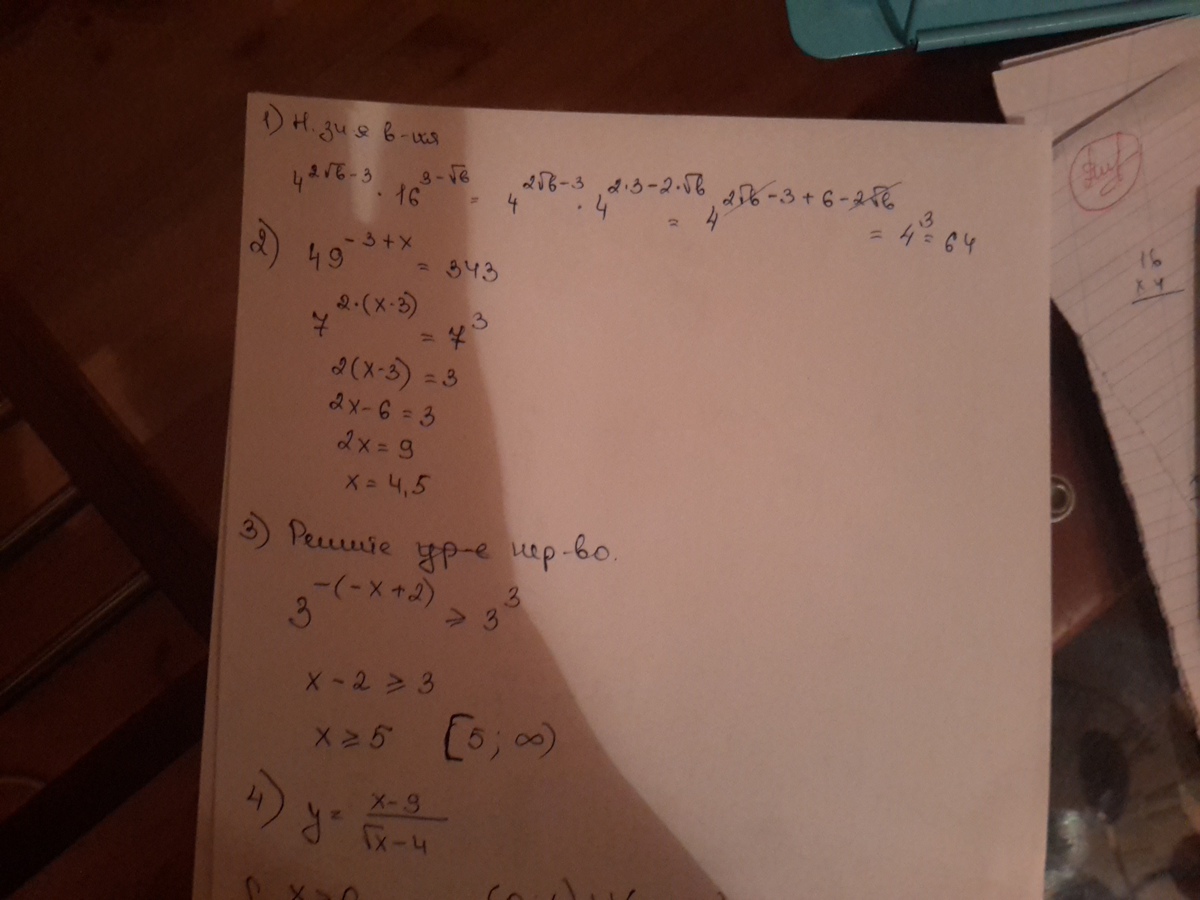 1) Н. зн-я в-ия
4^(2√6-3) · 16^(3-√6) = 4^(2√6-3) · 4^(2·3-2·√6) = 4^(2√6-3+6-2√6) = 4^3 = 64
2) 49^(-3+x) = 343
7^(2·(x-3)) = 7^3
2(x-3) = 3
2x-6 = 3
2x = 9
x = 4,5
3) Решите ур-е нер-во.
3^(-(-x+2)) ⩾ 3^3
x-2 ⩾ 3
x ⩾ 5 [5; ∞)
4) y = (x-9)/(√x-4)
16
x 4